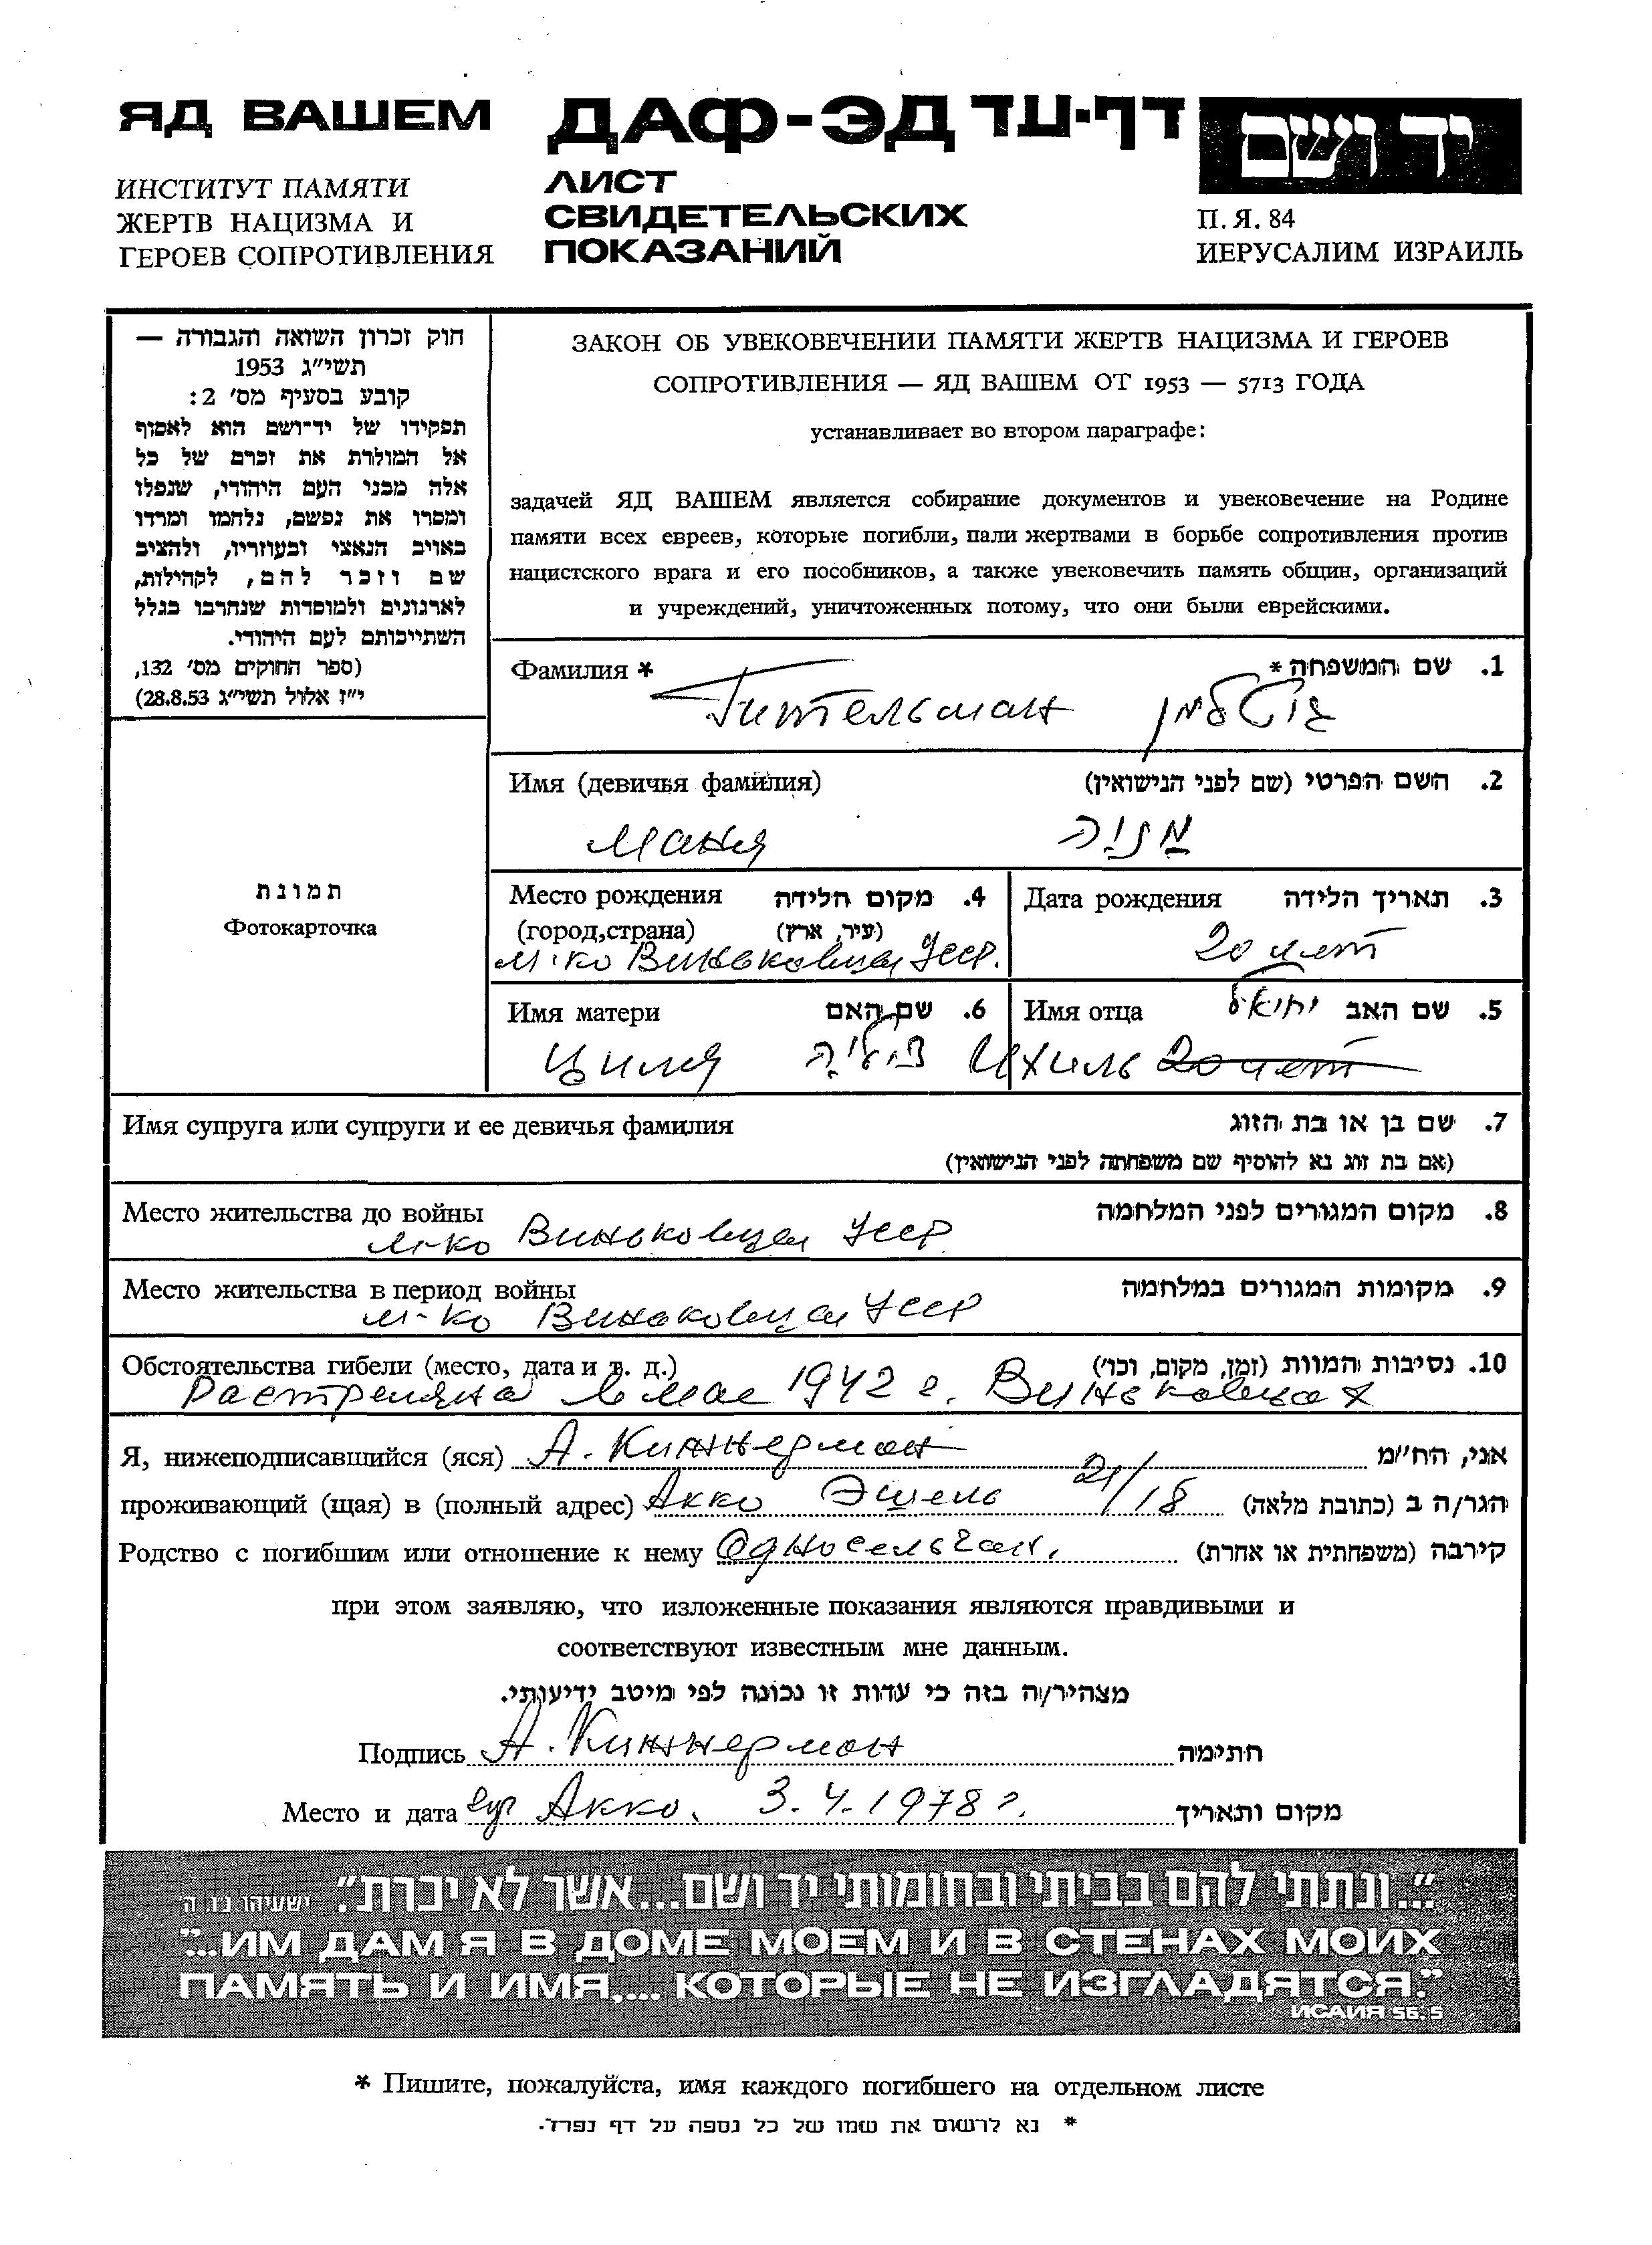 ЯД ВАШЕМ
ИНСТИТУТ ПАМЯТИ
ЖЕРТВ НАЦИЗМА И
ГЕРОЕВ СОПРОТИВЛЕНИЯ
ДАФ-ЭД דף-עד
ЛИСТ
СВИДЕТЕЛЬСКИХ
ПОКАЗАНИЙ
יד ושם
П. Я. 84
ИЕРУСАЛИМ ИЗРАИЛЬ
חוק זכרון השואה והגבורה —
תשי״ג 1953
קובע בסעיף מס׳ 2:
תפקידו של יד־ושם הוא לאסוף
אל המולדת את זכרם של כל
אלה מבני העם היהודי, שנפלו
ומסרו את נפשם, נלחמו ומרדו
באויב הנאצי ובעוזריו, ולהציב
שם וזכר להם, לקהילות,
לארגונים ולמוסדות שנחרבו בגלל
השתייכותם לעם היהודי.
(ספר החוקים מס׳ 132,
י״ז אלול תשי״ג 28.8.53)
תמונת
Фотокарточка
ЗАКОН ОБ УВЕКОВЕЧЕНИИ ПАМЯТИ ЖЕРТВ НАЦИЗМА И ГЕРОЕВ
СОПРОТИВЛЕНИЯ — ЯД ВАШЕМ ОТ 1953 — 5713 ГОДА
устанавливает во втором параграфе:
задачей ЯД ВАШЕМ является собирание документов и увековечение на Родине
памяти всех евреев, которые погибли, пали жертвами в борьбе сопротивления против
нацистского врага и его пособников, а также увековечить память общин, организаций
и учреждений, уничтоженных потому, что они были еврейскими.
Фамилия * 1. שם המשפחה *
Гительман גיטלמן
Имя (девичья фамилия) 2. השם הפרטי (שם לפני הנישואין)
Маня מַניָה
Место рождения 4. מקום הלידה
(город,страна) (עיר, ארץ)
м-ко Виньковцы Усср.
Дата рождения 3. תאריך הלידה
20 лет
Имя матери 6. שם האם
Циля ציליה
Имя отца 5. שם האב יחיאל
Ихиль 20 лет
Имя супруга или супруги и ее девичья фамилия 7. שם בן או בת הזוג
(אם בת זוג נא להוסיף שם משפחתה לפני הנישואין)
Место жительства до войны 8. מקום המגורים לפני המלחמה
м-ко Виньковцы Усср
Место жительства в период войны 9. מקומות המגורים במלחמה
м-ко Виньковцы Усср
Обстоятельства гибели (место, дата и т. д.) 10. נסיבות המוות (זמן, מקום, וכו׳)
Растреляна в мае 1942 г. Виньковцах
Я, нижеподписавшийся (яся) А. Кижнерман אני, הח״מ
проживающий (щая) в (полный адрес) Акко Эшель 21/18 הגר/ה ב (כתובת מלאה)
Родство с погибшим или отношение к нему Односельчан. קירבה (משפחתית או אחרת)
при этом заявляю, что изложенные показания являются правдивыми и
соответствуют известным мне данным.
מצהיר/ה בזה כי עדות זו נכונה לפי מיטב ידיעותי.
Подпись А. Кижнерман חתימה
Место и дата Акко. 3.4.1978 г. מקום ותאריך
״...ונתתי להם בביתי ובחומותי יד ושם...אשר לא יכרת״. ישעיהו נ״ו ה׳
"...ИМ ДАМ Я В ДОМЕ МОЕМ И В СТЕНАХ МОИХ
ПАМЯТЬ И ИМЯ,... КОТОРЫЕ НЕ ИЗГЛАДЯТСЯ."
ИСАИЯ 56.5
* Пишите, пожалуйста, имя каждого погибшего на отдельном листе
* נא לרשום את שמו של כל נספה על דף נפרד.